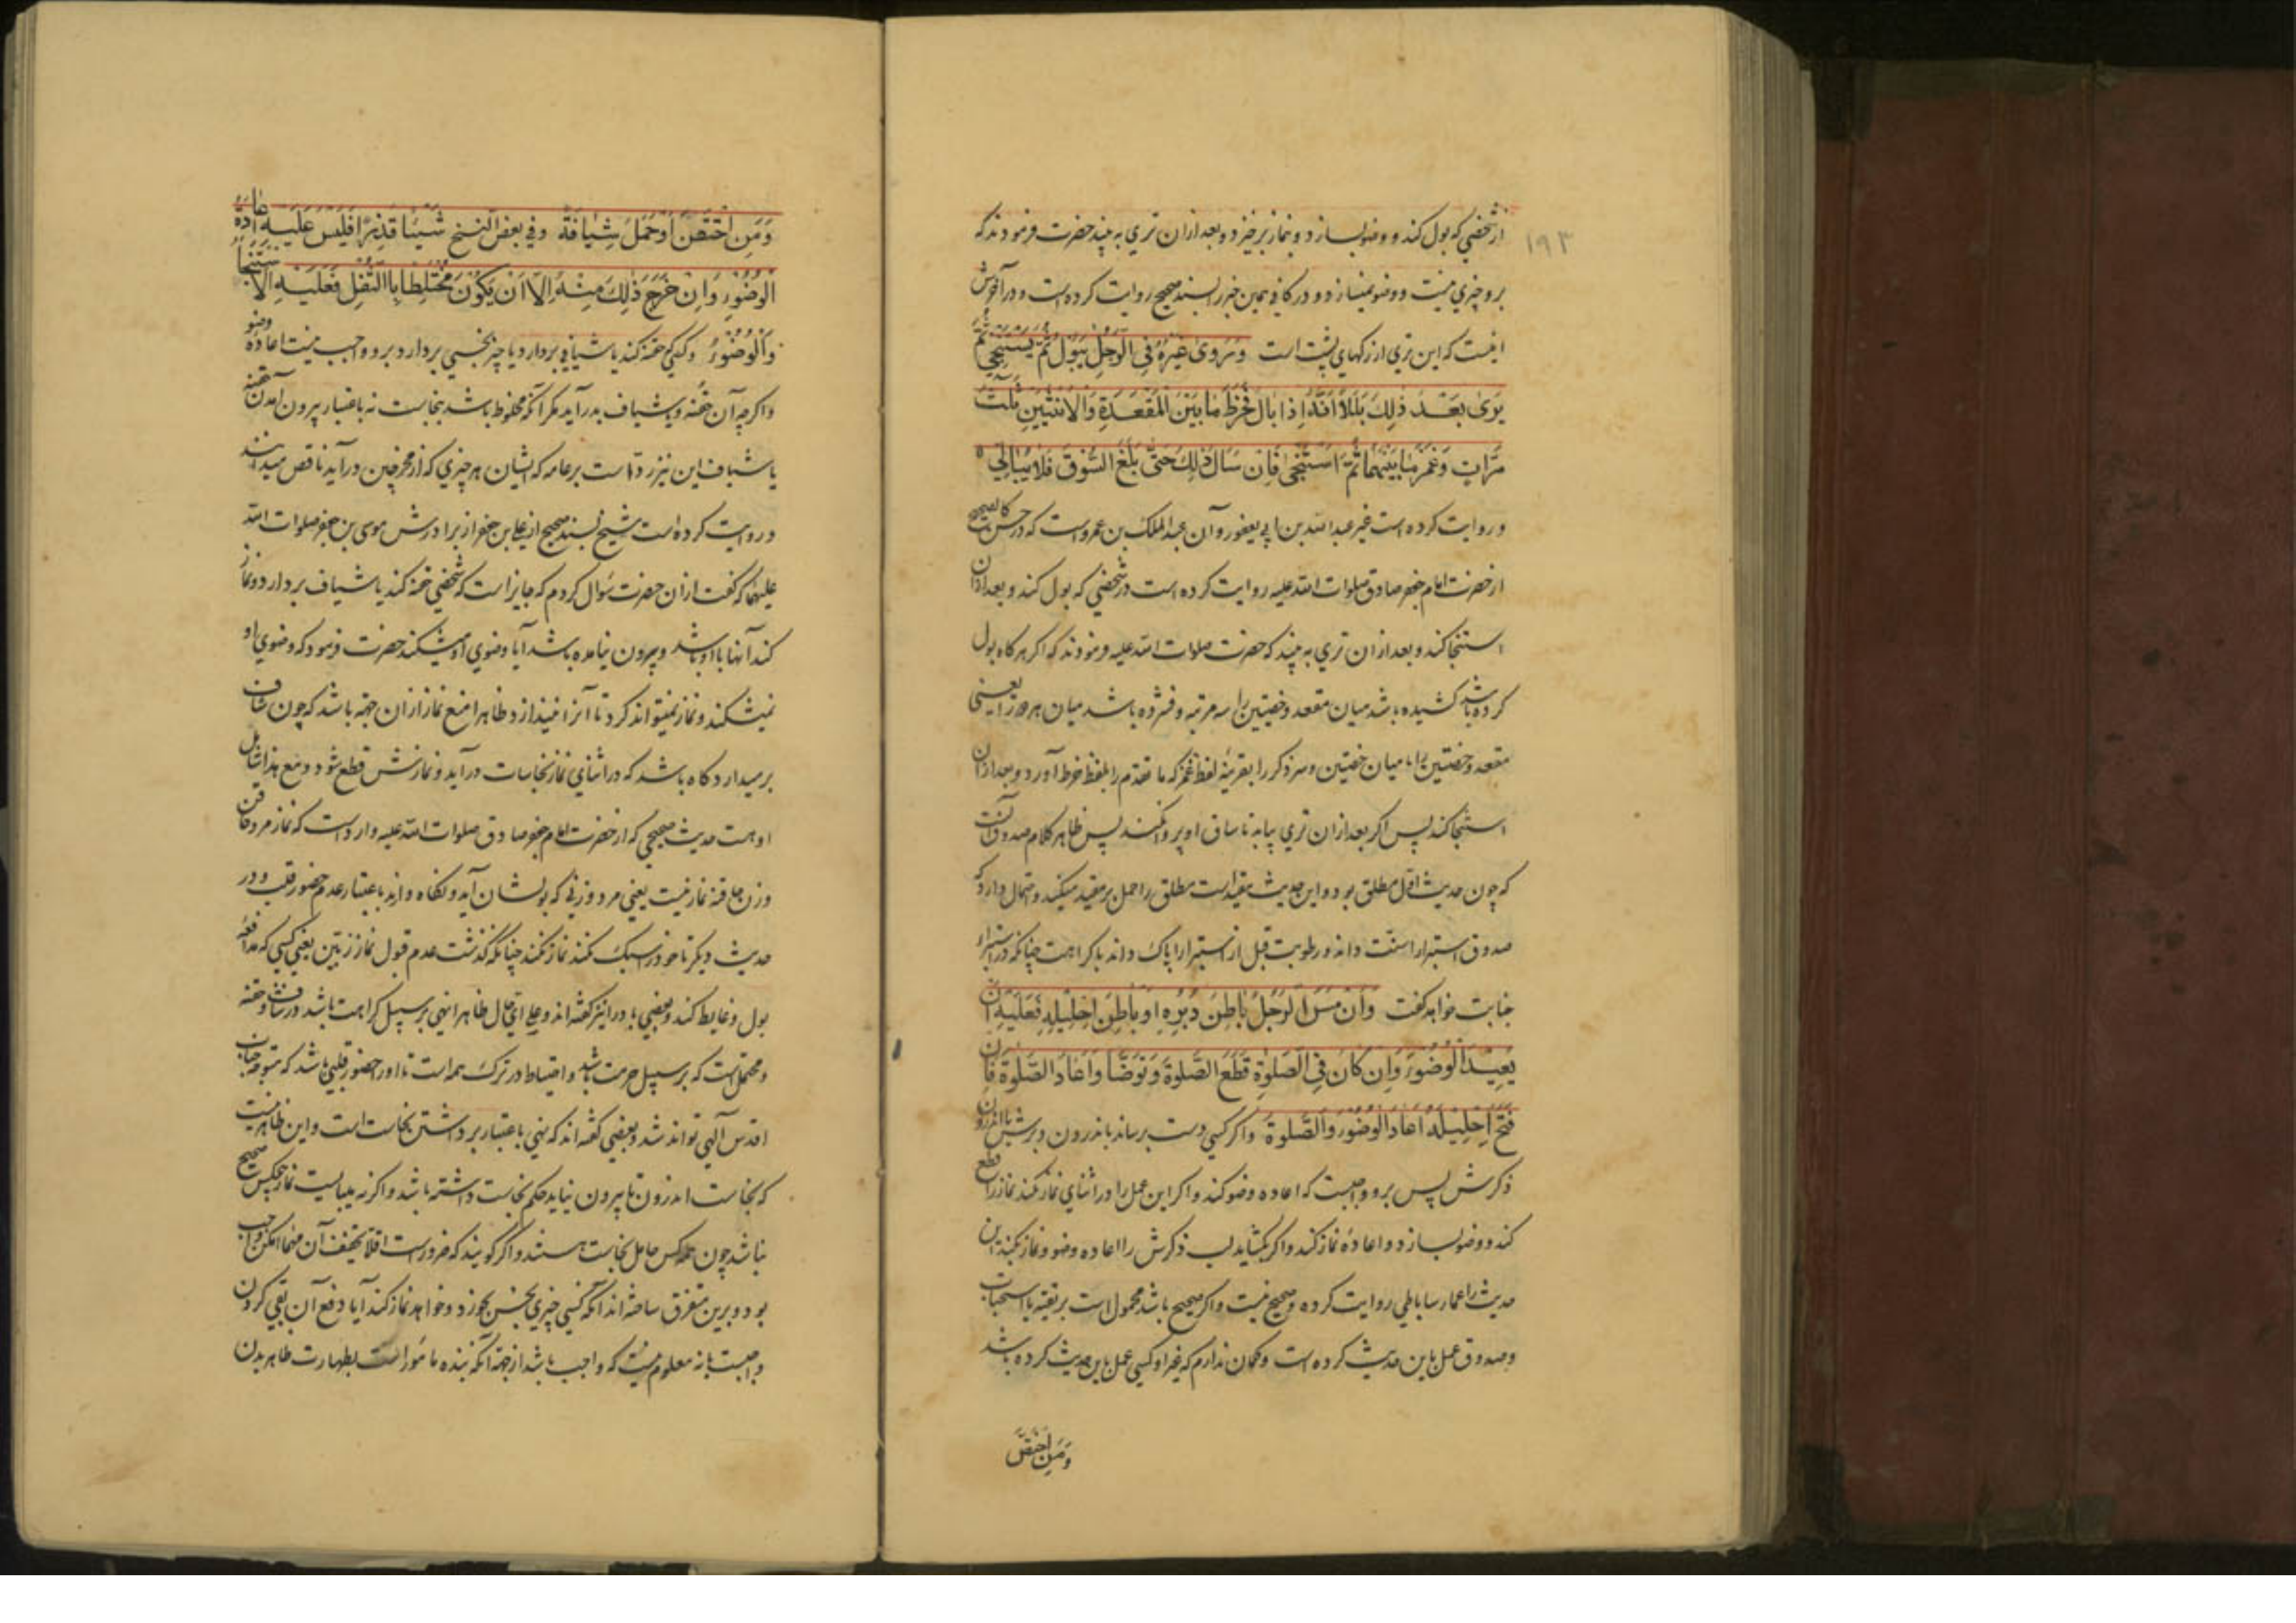 ۱۹۳
از شخصی که بول کند و وضو بسازد و بنماز برخیزد و بعد ازان تری به بیند حضرت فرمودند که
برو چیزی نیست و وضو نمیسازد و در کافی همین خبر را بسند صحیح روایت کرده است و در آخرش
اینست که این تری از رکهای پشت است وَرَوی غَیرُهُ فِی الرَجُلِ یَبُولُ ثُمَّ یَستَنجِی ثُمَّ
یَری بَعدَ ذلِکَ بَلَلاً اَنَّهُ اِذا بالَ فَخَرَطَ ما بَینَ المَقعَدَةِ وَالاُنثَیَینِ ثَلثَ
مَرّاتٍ وَغَمَزَ ما بَینَهُما ثُمَّ استَنجی فَاِن سَالَ ذلِکَ حَتّی بَلَغَ السُّوقَ فَلا یُبَالِی
و روایت کرده است غیر عبد الله بن ابی یعفور و آن عبد الملک بن عمرو است که در حسن کالصحیح
از حضرت امام جعفر صادق صلوات الله علیه روایت کرده است در شخصی که بول کند و بعد ازان
استنجا کند و بعد ازان تری به بیند که حضرت صلوات الله علیه فرمودند که اکر هرکاه بول
کرده باشد کشیده باشد میان مقعد و خصیتین را سه مرتبه و فشرده باشد میان هر دو را یعنی
مقعد و خصیتین را یا میان خصیتین و سر ذکر را بقرینهٔ لفظ غمز که ما تقدم را بلفظ خرط آورد و بعد ازان
استنجا کند پس اکر بعد ازان تری بیاید تا ساق او پروا نکند پس ظاهر کلام صدوق آنست
که چون حدیث اوّل مطلق بود و این حدیث مقیّد است مطلق را حمل بر مقید میکند و احتمال دارد که
صدوق استبرا را سنّت داند و رطوبت قبل از استبرا را پاک داند با کراهت چنانکه در استبراء
جنابت خواهد کفت وَاِن مَسَّ الرَجُلُ باطِنَ دُبُرِهِ اَو باطِنَ اِحلِیلِهِ فَعَلَیهِ اَن
یُعِیدَ الوُضُوءَ وَاِن کانَ فِی الصَّلوةِ قَطَعَ الصَّلوةَ وَتَوَضَّأَ وَاَعادَ الصَّلوةَ فَاِن
فَتَحَ اِحلِیلَهُ اَعادَ الوُضُوءَ وَالصَّلوةَ واکر کسی دست برساند باندرون دبرش یا اندرون
ذکرش پس برو واجبست که اعاده وضو کند و اکر این عمل را در اثنای نماز بکند نماز را قطع
کند و وضو بسازد و اعادهٔ نماز کند و اکر بکشاید لب ذکرش را اعاده وضو و نماز بکند این
حدیث را عمار ساباطی روایت کرده و صحیح نیست و اکر صحیح باشد محمول است بر تقیه یا استحباب
و صدوق عمل باین حدیث کرده است و کمان ندارم که غیر او کسی عمل باین حدیث کرده باشد
وَمَنِ احتَقَنَ
وَمَنِ احتَقَنَ اَو حَمَلَ شِیافَةً وفی بعض النسخ شَیئًا قَذِرًا فَلَیسَ عَلَیهِ اِعَادَةُ
الوُضُوءِ وَاِن خَرَجَ ذلِکَ مِنهُ اِلّا اَن یَکُونَ مُختَلِطًا بِالثُّفلِ فَعَلَیهِ الاِستِنجَاءُ
وَالوُضُوءُ و کسی که حقنه کند یا شیافی بردارد یا چیز نجسی بردارد برو واجب نیست اعادهٔ وضو
و اکرچه آن حقنه و شیاف بدر آید مکر آنکه مخلوط باشد بنجاست نه باعتبار بیرون آمدن حقنه
یا شیاف این نیز ردّ است بر عامه که ایشان هر چیزی که از مخرجین در آید ناقص میدانند
و روایت کرده است شیخ بسند صحیح از علی بن جعفر از برادرش موسی بن جعفر صلوات الله
علیهما که کفت ازان حضرت سؤال کردم که جایز است که شخصی حقنه کند یا شیاف بردارد و نماز
کند آنها با او باشد و بیرون نیامده باشد آیا وضوی او میشکند حضرت فرمود که وضوی او
نمیشکند و نماز نمیتواند کرد تا آنرا نیندازد و ظاهرا منع نماز ازان جهة باشد که چون شاف
برمیدارد کاه باشد که در اثنای نماز نجاسات در آید و نمازش قطع شود و منع هذا شامل
او هست حدیث صحیحی که از حضرت امام جعفر صادق صلوات الله علیه وارد است که نماز مرد حاقن
و زن حاقنه نماز نیست یعنی مرد و زنی که بولشان آید و نکاه دارند باعتبار عدم حضور قلب و در
حدیث دیکر تا خود را سبک نکند نماز نکند چنانکه کذشت عدم قبول نماز زبّین یعنی کسی که مدافعهٔ
بول و غایط کند و بعضی باد را نیز کفته اند و علی ای حال ظاهرا نهی بر سبیل کراهت باشد در شاف و حقنه
و محتمل است که بر سبیل حرمت باشد و احتیاط در ترک همه است تا او را حضور قلبی باشد که متوجه جناب
اقدس الهی تواند شد و بعضی کفته اند که نهی باعتبار برداشتن نجاست است و این ظاهر نیست
که نجاست اندرون تا بیرون نیاید حکم نجاست داشته باشد و اکر نه میبایست نماز هیچکس صحیح
نباشد چون همه کس حامل نجاست هستند و اکر کویند که ضرور است اقلا تخفیف آن مهما امکن واجب
بود و برین متفرق ساخته اند آنکه کسی چیزی نجس بخورد و خواهد نماز کند آیا دفع آن بقی کردن
واجبست یا نه معلوم نیست که واجب باشد از جهة آنکه بنده مامور است بطهارت ظاهر بدن